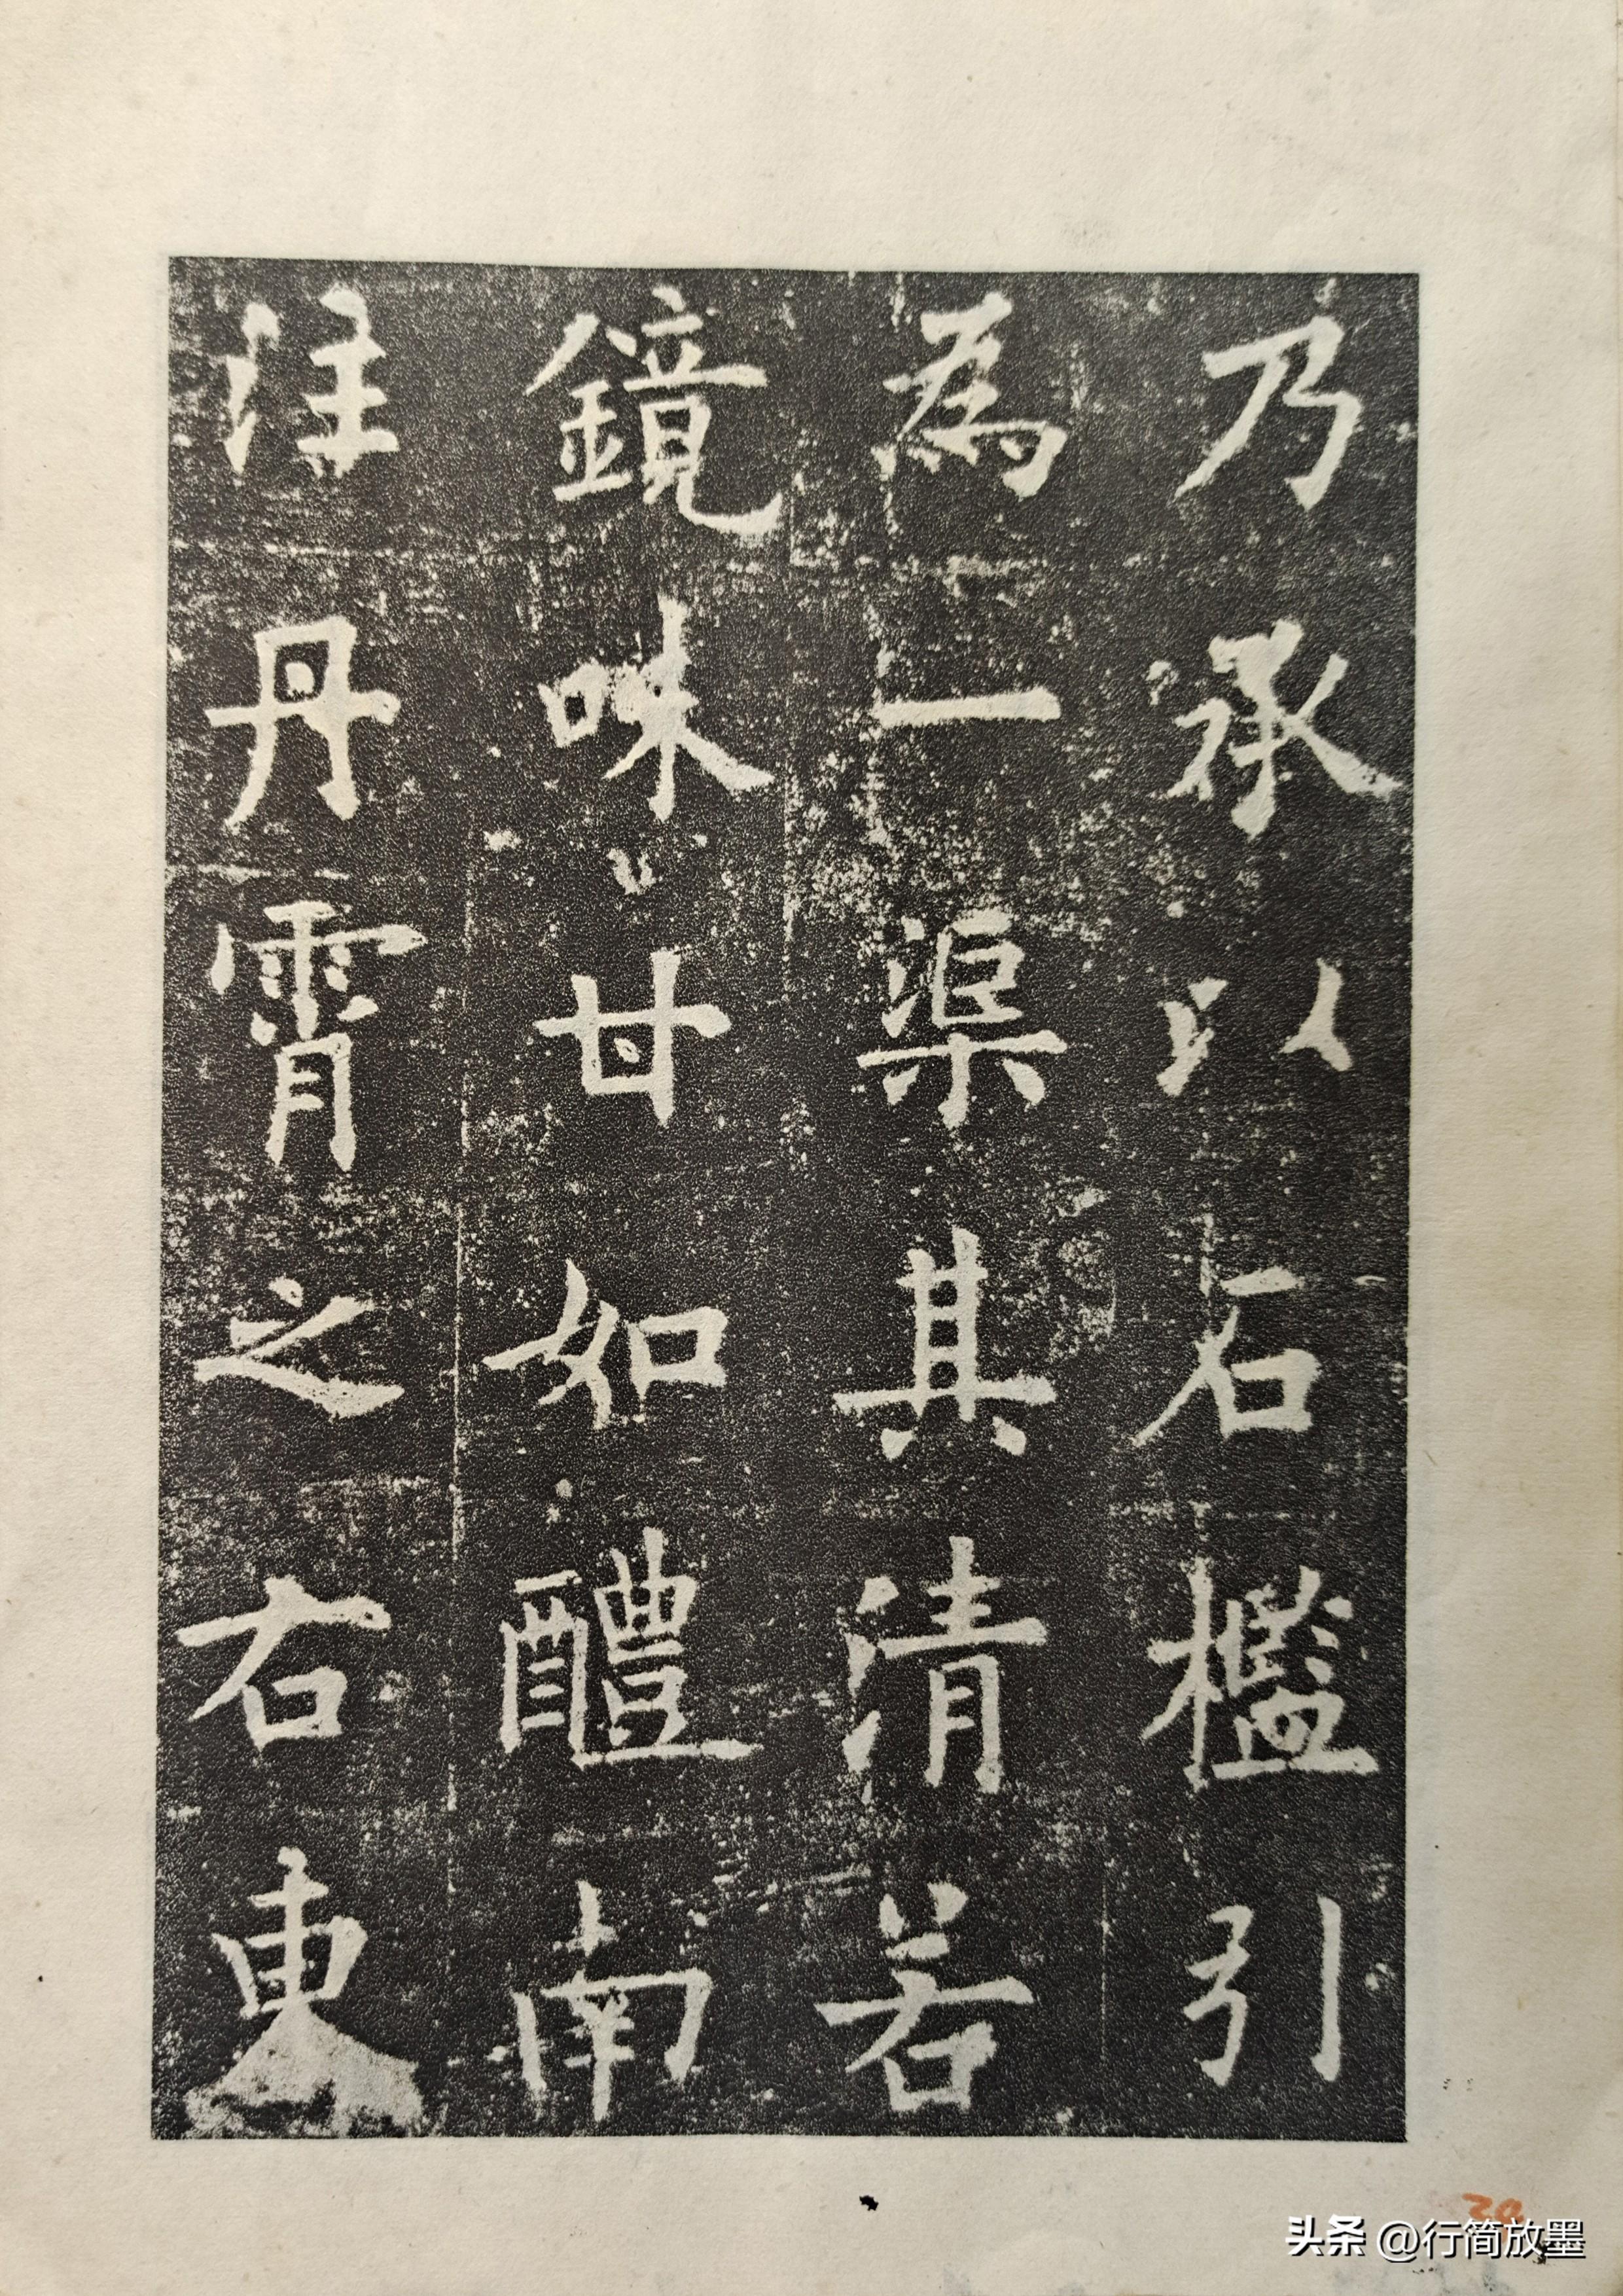 乃承以石檻引
為一渠其清若
鏡味甘如醴南
注丹霄之右東
头条 @行简放墨